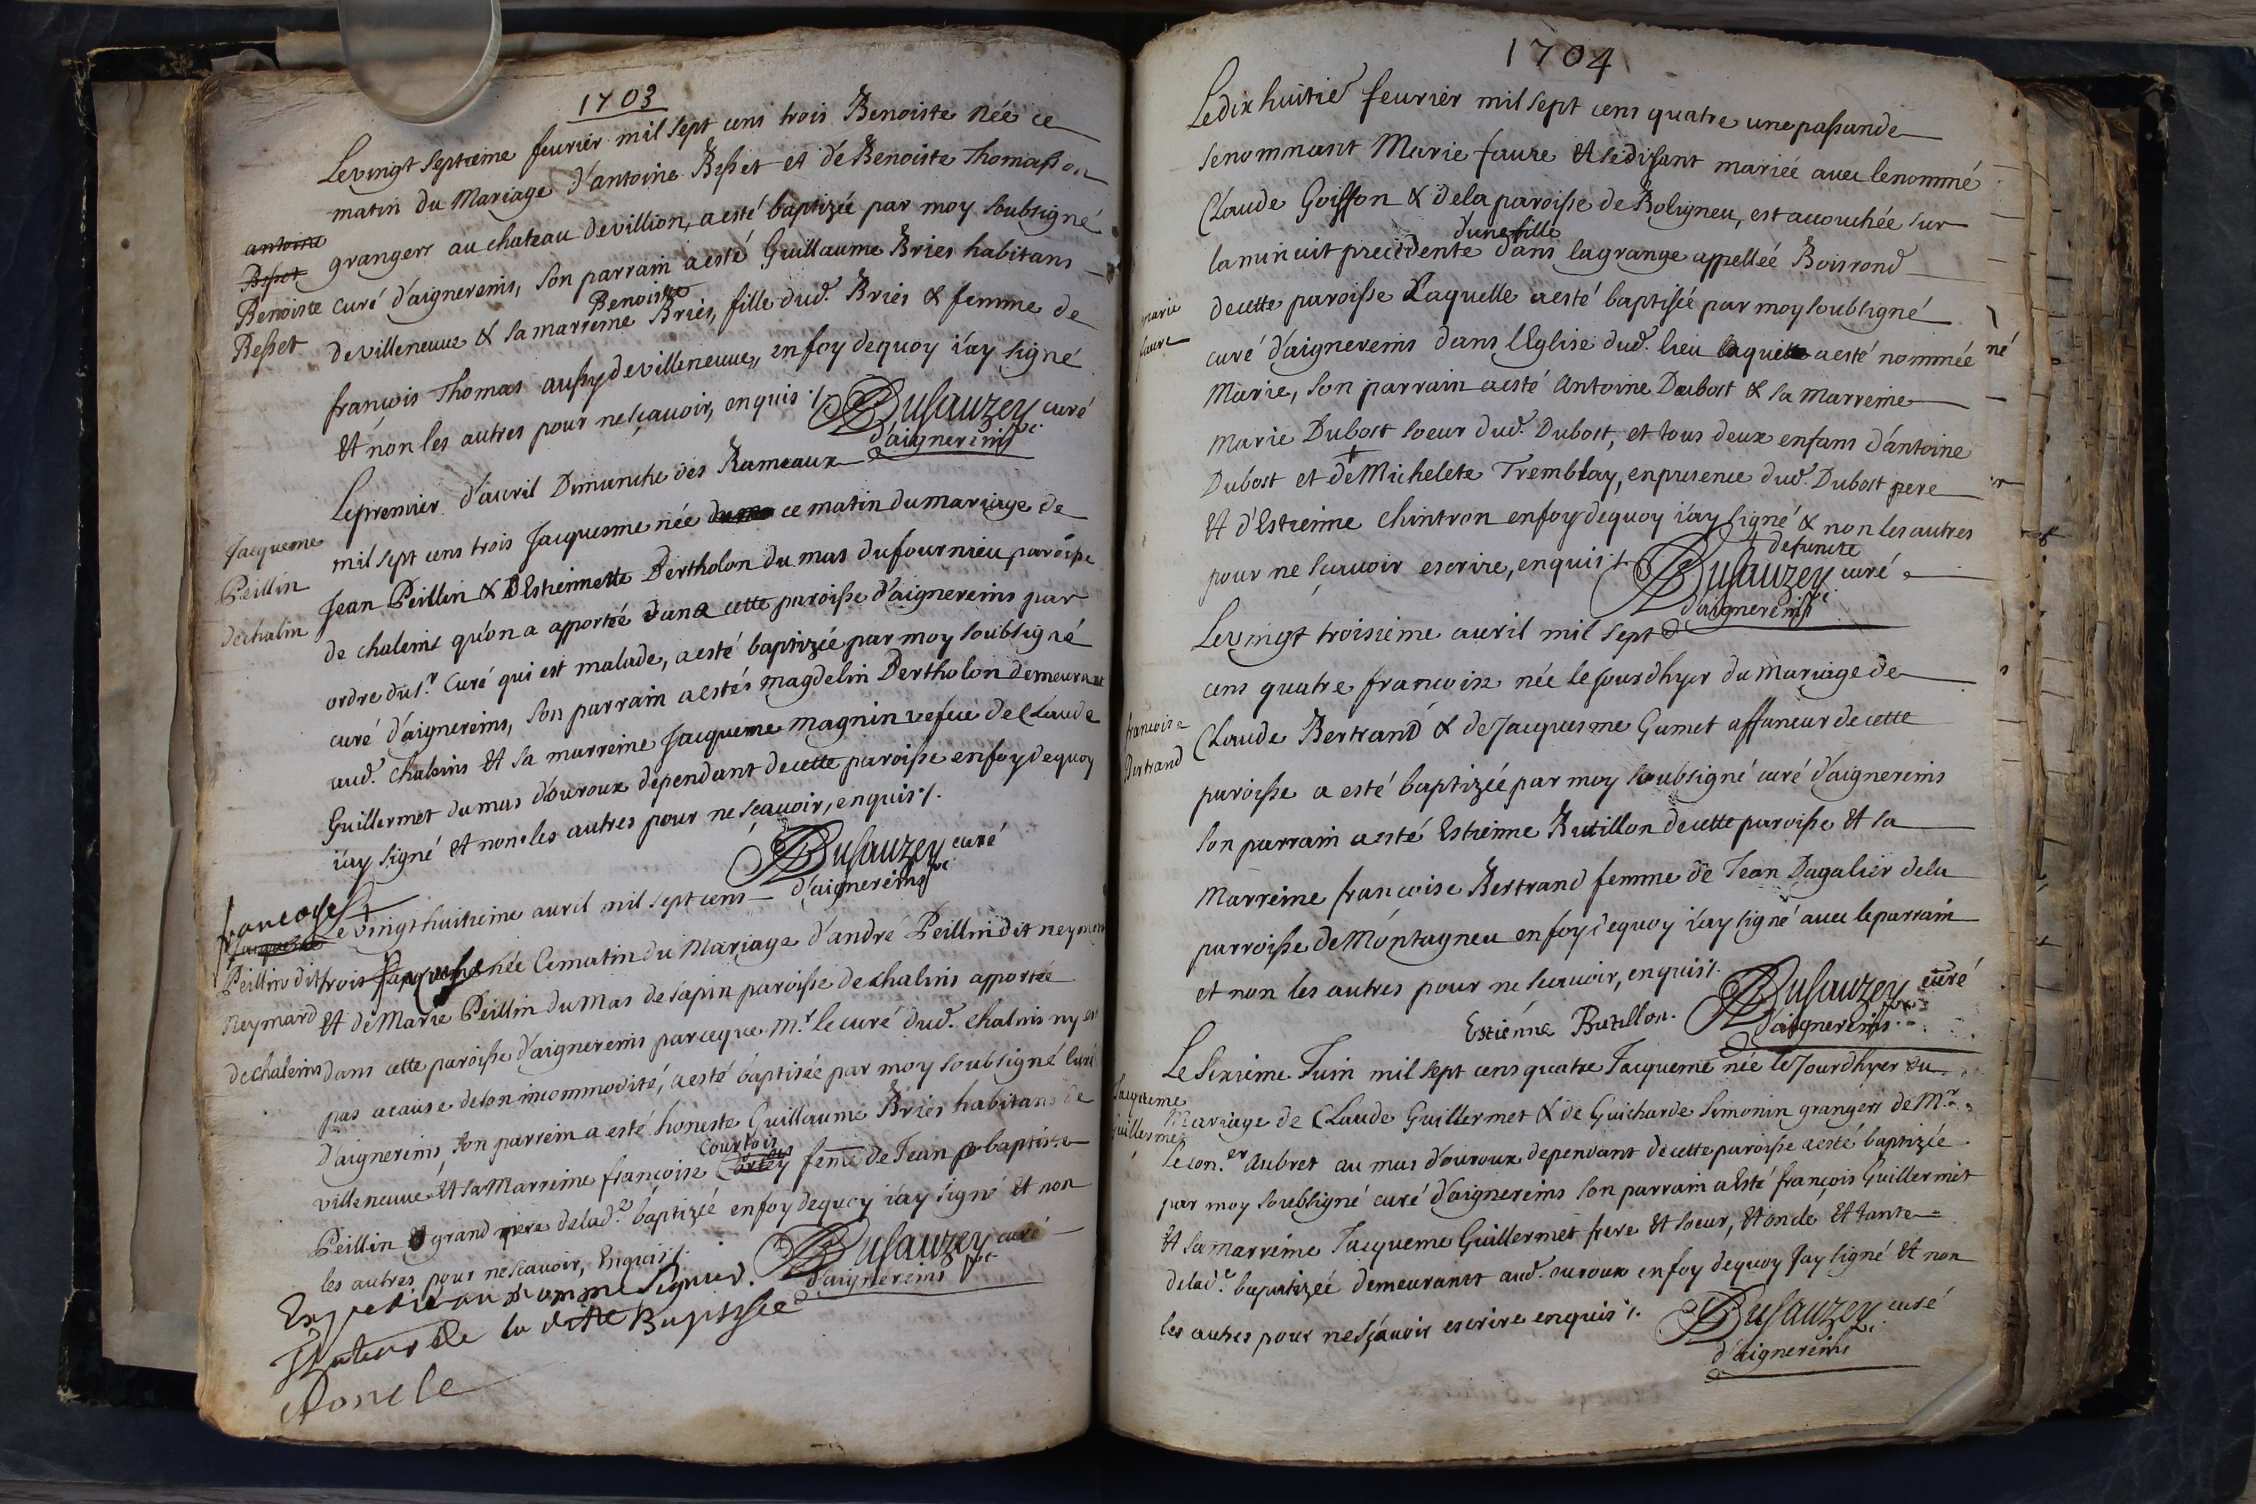 1703
Le vingt septieme feurier mil sept cens trois Benoiste née ce
matin du Mariage d'antoine Besset et de Benoiste Thomasson
grangers au chateau de villion, a esté baptizée par moy soubsigné
curé d'aignereins, son parrain a esté Guillaume Briés habitans
Benoiste
de villeneuue & sa marreine Briés, fille dud. Briés & femme de
françois Thomas aussy de villeneuue, en foy dequoy i'ay signé
Et non les autres pour ne sçauoir, enquis ./.
Dusauzey curé
d'aignereins
antoine
Besset
Benoiste
Besset
Le premier d'auril Dimanche des Rameaux
mil sept cens trois Jacquesme née ce matin du mariage de
Jean Peillin & D'Estiennette Bertholon du mas du fournieu paroisse
de chaleins qu'on a apportée dans cette paroisse d'aignereins par
ordre du sr. Curé qui est malade, a esté baptizée par moy soubsigné
curé d'aignereins, son parrain a estés magdelin Bertholon demeurant
aud. chaleins Et sa marreine Jacqueme magnin vefue de Claude
Guillermet du mas d'ouroux dependant de cette paroisse en foy dequoy
i'ay signé Et non les autres pour ne sçauoir, enquis ./.
Dusauzey curé
d'aignereins
Jacqueme
Peillin
de chalin
Le vingt huitieme auril mil sept cens
trois née Ce matin du Mariage d'andré Peillin dit neymard
Et de Marie Peillin du Mas de sapin paroisse de chaleins apportée
dans cette paroisse d'aignereins parceque Mr. le curé dud. chaleins ny est
pas a cause de son incommodité, a esté baptisée par moy soubsigné Curé
D'aignereins, son parrein a esté honeste Guillaume Briés habitans de
Courtois
villeneuue Et sa Marreine françoise feme de Jean baptiste
Peillin & grand mere de lad.e baptizée en foy dequoy i'ay signé Et non
les autres pour ne scauoir, Enquis ./.
Dusauzey curé
d'aignereins
françoise
Peillin dit
Neymard
de chaleins
Expedie au nomme Siguid.
Tuteur de la ditte Baptisée
Roncle
1704
Le dix huitie feurier mil sept cens quatre une passande
se nommant Marie faure Et se disant mariée auec le nommé
Claude Goiffon & de la paroisse de Boligneu, est acouchée sur
d'une fille
la minuit precedente dans la grange appellée Boisrond
de cette paroisse Laquelle a esté baptisée par moy soubsigné
curé d'aignereins dans l'Eglise dud. lieu laquelle a esté nommée
Marie, son parrain a esté Antoine Dubost & sa Marreine
Marie Dubost soeur dud. Dubost, et tous deux enfans d'antoine
Dubost et de Michelete Tremblay, en presence dud. Dubost pere
Et d'Estienne chintron en foy dequoy i'ay signé & non les autres
defuncte
pour ne sçauoir escrire, enquis ./.
Dusauzey curé
d'aignereins
marie
faure
Le vingt troisieme auril mil sept
cens quatre francoise née le jourdhyer du Mariage de
Claude Bertrand & de Jacquesme Gamet affaneur de cette
paroisse a esté baptizée par moy soubsigné curé d'aignereins
Son parrain a esté Estienne Butillon de cette paroisse Et sa
Marreine françoise Bertrand femme de Jean Dagalier de la
parroisse de Montagneu en foy dequoy i'ay signé auec le parrain
et non les autres pour ne scauoir, enquis ./.
Estienne Butillon.
Dusauzey curé
d'aignereins
francoise
Bertrand
Le Sixieme Juin mil sept cens quatre Jacqueme née le Jourdhyer du
Mariage de Claude Guillermet & de Guicharde Simonin grangers de Mr.
le con.er Aubret au mas d'ouroux dependant de cette paroisse a esté baptizée
par moy soubsigné curé d'aignereins son parrain a Esté françois Guillermet
Et sa marreine Jacqueme Guillermet frere Et soeur, Et oncle Et tante
de lad.e baptizée demeurants aud. ouroux en foy dequoy J'ay signé Et non
les autres pour ne sçauoir escrire enquis ./.
Dusauzey curé
d'aignereins
Jacqueme
Guillermet